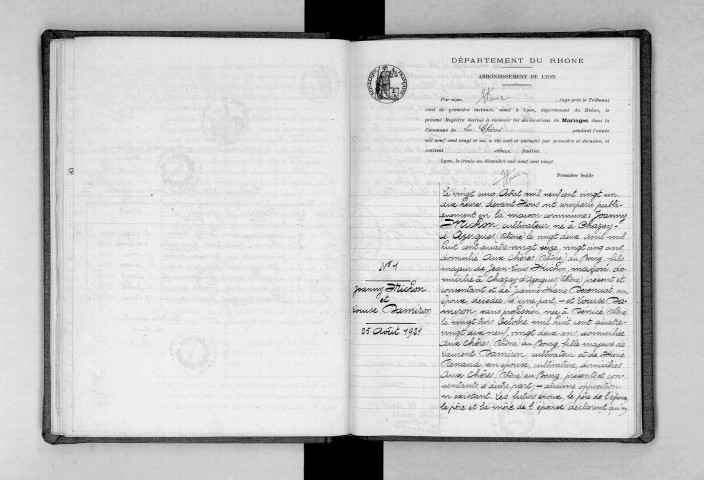 DÉPARTEMENT DU RHONE
ARRONDISSEMENT DE LYON
Par nous, , Juge près le Tribunal
civil de première instance, séant à Lyon, département du Rhône, le
présent Registre destiné à recevoir les déclarations de Mariages dans la
Commune de Les Chères pendant l'année
mil neuf cent vingt et un, a été coté et paraphé par première et dernière, et
contient deux feuilles.
Lyon, le trente-un décembre mil neuf cent vingt.
Première feuille
N° 1
Joanny Michon
et
Louise Damiron
25 Août 1921
Le vingt cinq Août mil neuf cent vingt un,
dix heures, devant Nous ont comparu publi-
quement en la maison commune: Joanny
Michon, cultivateur né à Chazay-
d'Azergues (Rhône) le vingt deux Avril mil
huit cent quatre-vingt seize, vingt cinq ans,
domicilié Aux Chères (Rhône) au Bourg, fils
majeur de Jean-Louis Michon, maçon do-
micilié à Chazay d'Azergues (Rhône) présent et
consentant et de Marie son
épouse décédée, d'une part, - et Louise Da-
miron sans profession, née à (Rhône)
le vingt trois Octobre mil huit cent quatre-
vingt dix neuf, vingt deux ans, domiciliée
aux Chères (Rhône) au Bourg, fille majeure de
Laurent Damiron, cultivateur et de Marie
Renaud, son épouse, cultivatrice, domiciliés
Aux Chères (Rhône) au Bourg, présents et con-
sentants d'autre part; - aucune opposition
n'existant. Les futurs époux, le père de l'époux
le père et la mère de l'épouse déclarent qu'il